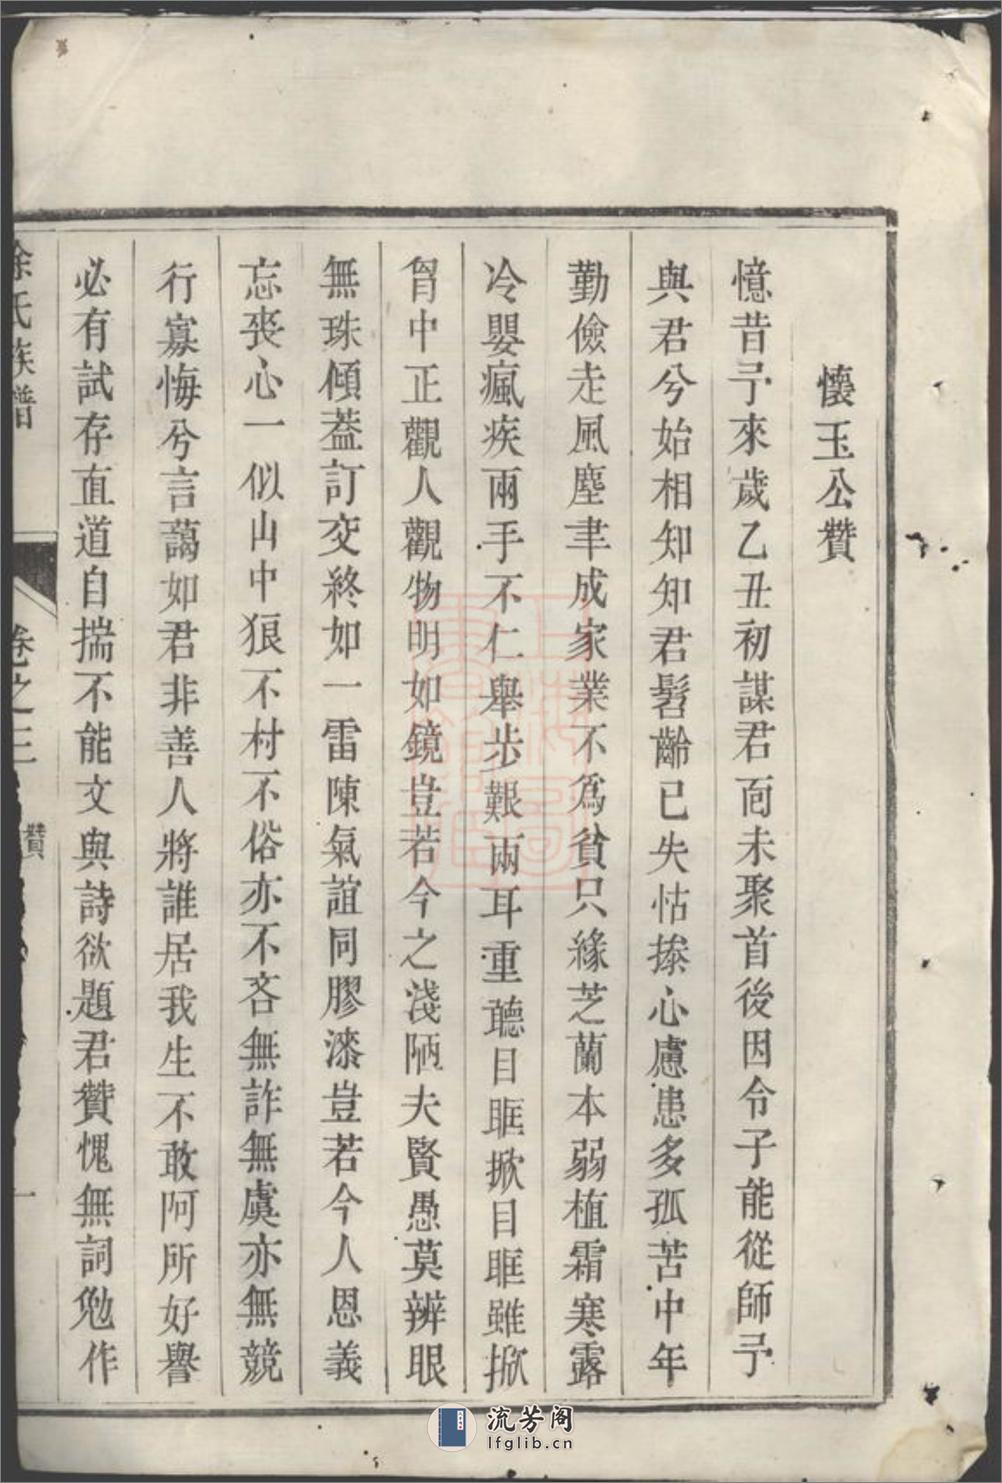 懷玉公贊
憶昔予來歲乙丑初謀君面未聚首後因令子能從師予
與君兮始相知知君髫齡已失怙操心慮患多孤苦中年
勤儉走風塵聿成家業不爲貧只緣芝蘭本弱植霜寒露
冷嬰瘋疾兩手不仁舉步艱兩耳重聽目眶掀目眶雖掀
胷中正觀人觀物明如鏡豈若今之淺陋夫賢愚莫辨眼
無珠傾葢訂交終如一雷陳氣誼同膠漆豈若今人恩義
忘喪心一似山中狼不村不俗亦不吝無詐無虞亦無競
行寡悔兮言藹如君非善人將誰居我生不敢阿所好譽
必有試存直道自揣不能文與詩欲題君贊愧無詞勉作
徐氏族譜
卷之三
贊
一
流芳阁
lfglib.cn